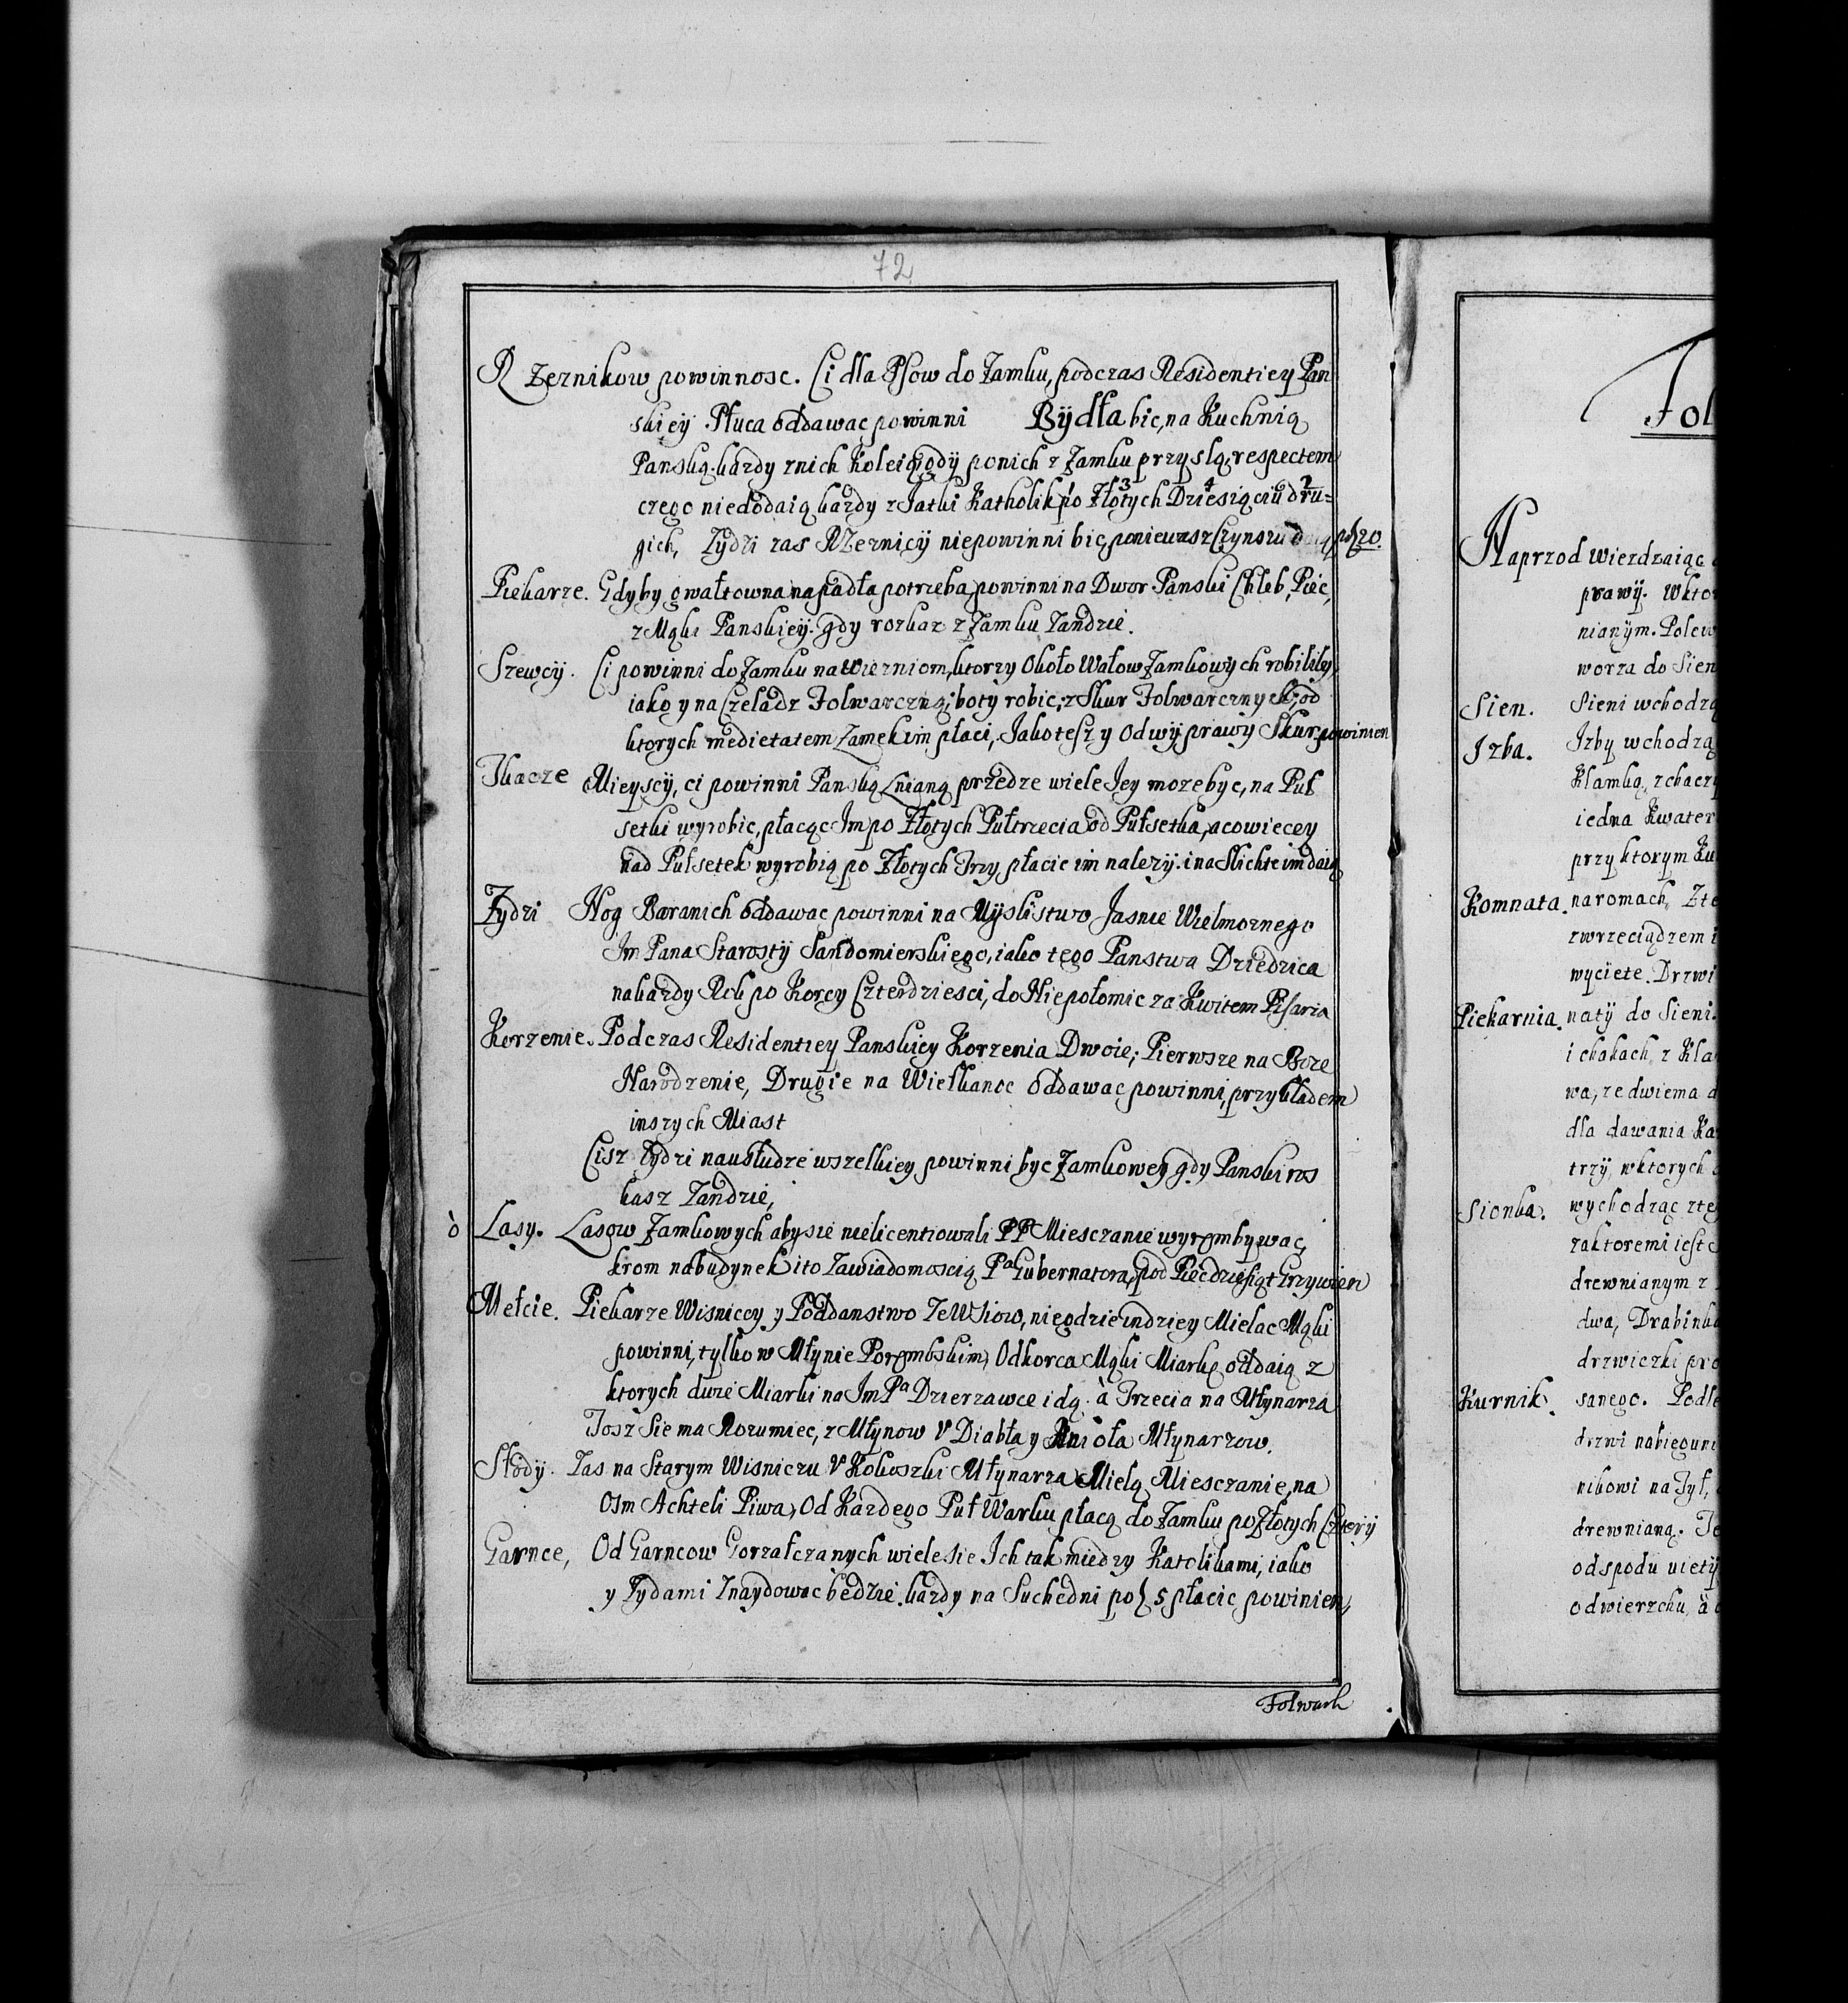 72
Rzeznikow powinnosc. Ci dla Psow do Zamku, podczas Residentiey Pan
skieÿ Płuca oddawac powinni Bÿdła bic, na Kuchnią
Panską kazdy z nich Koleią gdÿ ponich z Zamku przyslą, respectem
czego niedodaią kazdy z Jatki Katholik po Złotych Dziesiąciu dru=
gich, Zÿdzi zas Rzeznicÿ niepowinni bic, poniewasz Czynszu daią po ƶ 20.
Piekarze. Gdyby gwałtowna napadła potrzeba, powinni na Dwor Panski Chleb, Piec,
z Mąki Panskieÿ. gdy rozkaz z Zamku Zaÿdzie.
Szewcÿ. Ci powinni do Zamku na Wiezniom, ktorzy Około Wałow Zamkowÿch robiliby,
iako y na Czeladz Folwarczną, botÿ robic, z Skur Folwarcznych, od
ktorych medietatem Zamek im płaci, Jako tesz y Od wÿprawÿ Skur powinien
Tkacze Mieyscÿ, ci powinni Panską Lnianą przedze wiele Jey moze byc, na Puł
setki wyrobic, płacąc Im po Złotych Pułtrzecia od Pułsetka, a co wiecey
nad Pułsetek wyrobią po Złotych Trzy płacic im nalezÿ. i na Slichte im daią
Zydzi Nog Baranich oddawac powinni na Mÿslistwo Jasnie Wielmoznego
Im Pana Starostÿ Sandomierskiego, iako tego Panstwa Dziedzica
na kazdy Rok po Korcy Czterdziesci, do Niepołomic za Kwitem Pisarza
Korzenie. Podczas Residentiey Panskiey Korzenia Dwoie; Pierwsze na Boze
Narodzenie, Drugie na Wielkanoc Oddawac powinni, przykładem
inszych Miast
Cisz Zydzi na usłudze wszelkiey powinni byc Zamkowey, gdy Panski ros
kasz Zaÿdzie,
ò Lasy. Lasow Zamkowych aby sie nielicentiowali PP Miesczanie wyrombywac,
krom na budynek i to Zawiadomoscią Pa Gubernatora, pod Piecdziesiąt Grzywien
Mełcie. Piekarze Wisniccy y Poddanstwo Ze Wsiow, nigdzie indziey Mielac Mąki
powinni, tylko w Młynie Porombskim, Od korca Mąki Miarkę oddaią z
ktorych dwie Miarki na Im Pa Dzierzawce idą. à Trzecia na Młynarza
Tosz Sie ma Rozumiec, z Młynow V Diabła y Anioła Młynarzow.
Słody. Zas na Starym Wisniczu V Kokoszki Młynarza Mielą Miesczanie, na
Osm Achteli Piwa, Od Kazdego Puł Warku płacą do Zamku po Złotych Cztery
Garnce, Od Garncow Gorzałczanych wiele sie Ich tak miedzy Katolikami, iako
y Zydami Znaydowac bedzie. kazdy na Suchedni po ƶ 5 płacic powinien,
Folwark
Fol
Naprzod wierdzaiąc
prawÿ. Wktor
nianÿm. Polew
worza do Sien
Sien. Sieni wchodzą
Izba. Izby wchodzą
Klamką, z haczy
iedna Kwater
przy ktorym Ku
Komnata. na romach, Zte
zwrzeciądzem i
wyciete. Drzwi
Piekarnia. natÿ do Sieni.
i chakach, z Kla
wa, ze dwiema
dla dawania Ka
trzÿ, wktorych
Sionka. wychodząc zte
zaktoremi iest
drewnianym z
dwa, Drabinka
drzwiczki pro
Kurnik. sanego. Podle
drzwi na biegun
nikowi na Tył,
drewnianą. Te
odspodu vietÿ
odwierzchu, à